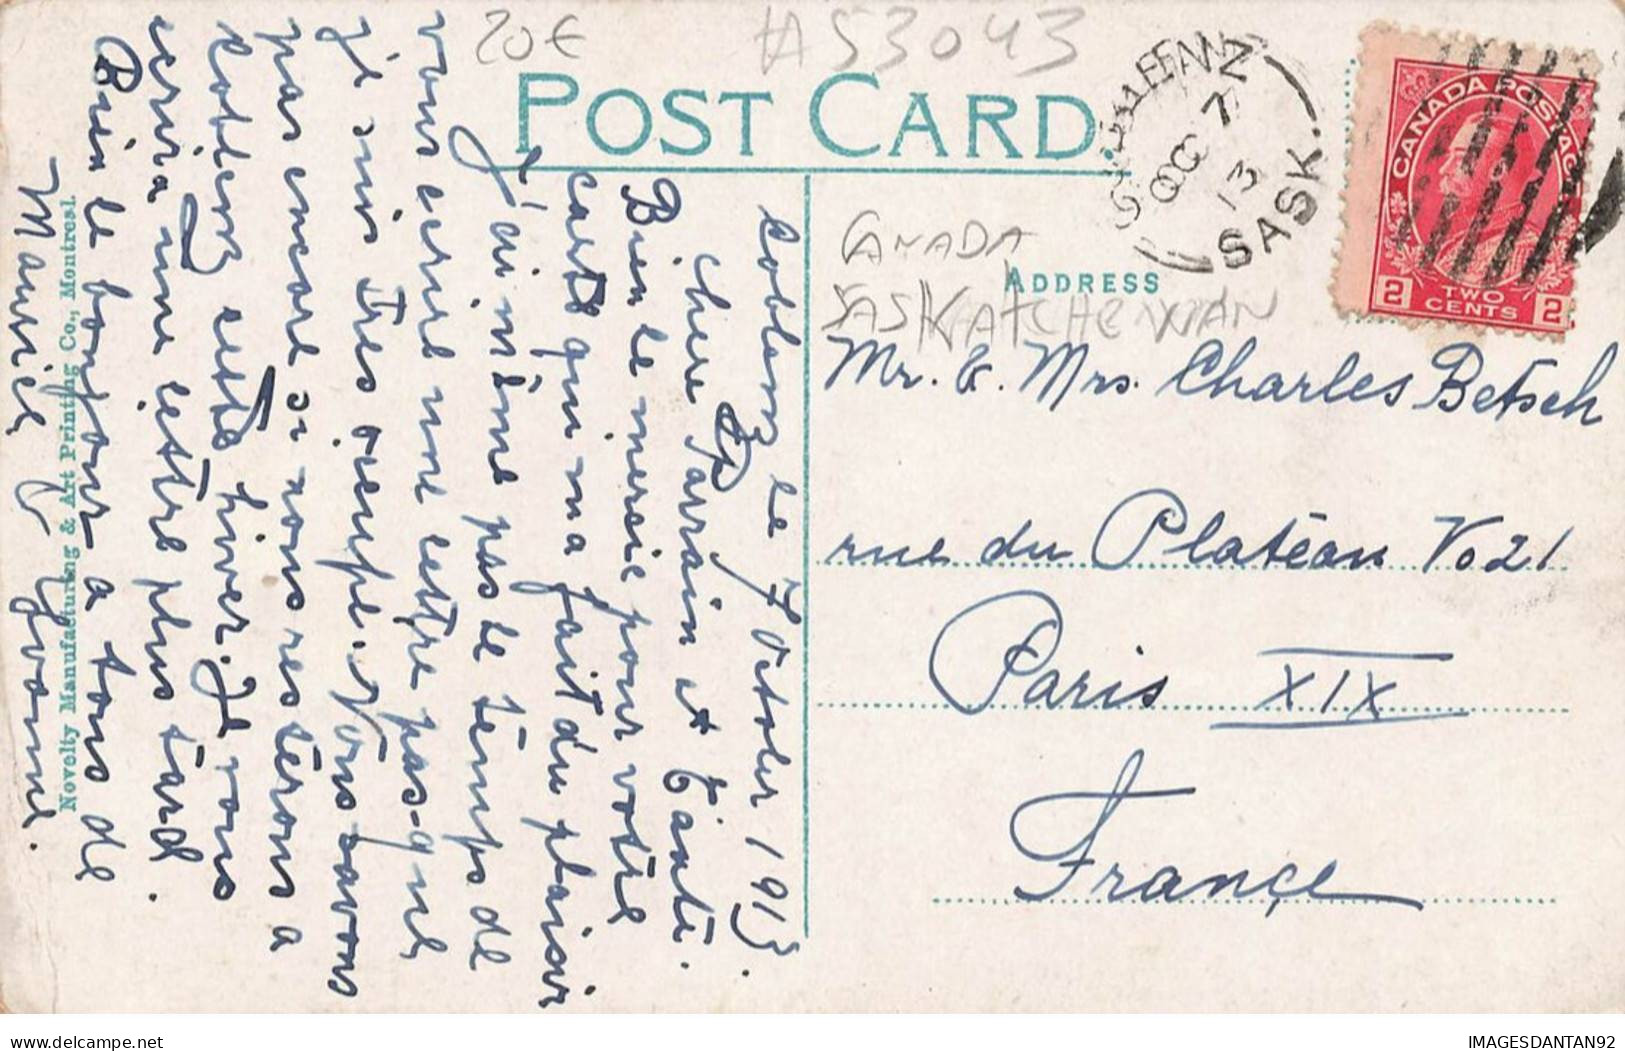 20€
A53043
POST CARD
Coblenz le 7 Octobre 1913.
Chere Parrain et Tante.
Bien le mercie pour votre
carte qui m'a fait du plaisir
J'ai même pas le temps de
vous ecrire une lettre pasque
je suis tres occupe. Nous savons
pas encore si nous resterons a
Coblenz cette hiver. Je vous
ecrira une lettre plus tard.
Bien le bonjour a tous de
Maurice & Yvonne.
Novelty Manufacturing & Art Printing Co., Montreal.
OC 7
13
SASK.
CANADA POSTAGE
2 TWO CENTS 2
CANADA
ADDRESS
SASKATCHEWAN
Mr. & Mrs. Charles Betsch
rue du Plateau No 21
Paris XIX
France
delcampe.net
IMAGESDANTAN92